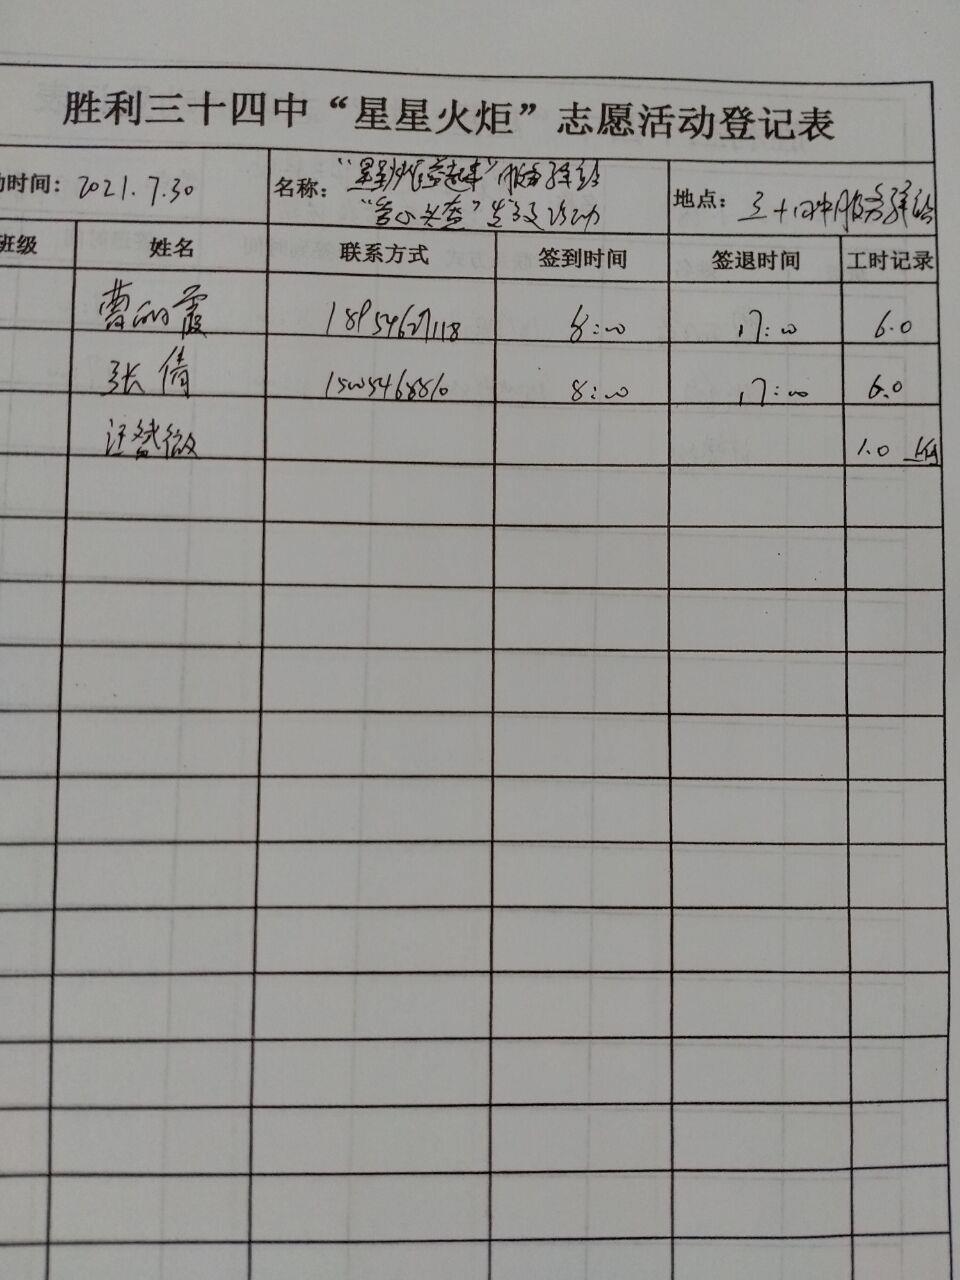 胜利三十四中“星星火炬”志愿活动登记表
动时间: 2021.7.30 名称: 服务驿站 地点: 三十四中服务驿站
活动
班级 姓名 联系方式 签到时间 签退时间 工时记录
曹 霞 18954627118 8:00 17:00 6.0
张倩 15054688610 8:00 17:00 6.0
汪 薇 1.0